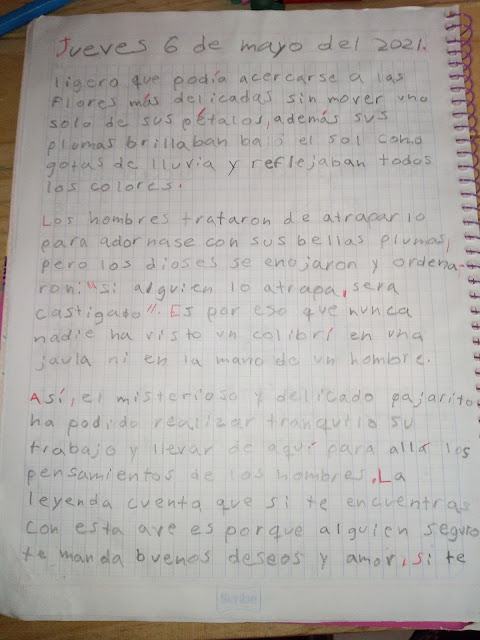 Jueves 6 de mayo del 2021.
ligero que podía acercarse a las
flores más delicadas sin mover uno
solo de sus pétalos, además sus
plumas brillaban bajo el sol como
gotas de lluvia y reflejaban todos
los colores.
Los hombres trataron de atraparlo
para adornase con sus bellas plumas,
pero los dioses se enojaron y ordena-
ron: "si alguien lo atrapa, sera
castigado". Es por eso que nunca
nadie ha visto un colibrí en una
jaula ni en la mano de un hombre.
Así, el misterioso y delicado pajarito
ha podido realizar tranquilo su
trabajo y llevar de aquí para allá los
pensamientos de los hombres. La
leyenda cuenta que si te encuentras
con esta ave es porque alguien seguro
te manda buenos deseos y amor, si te
Scribe